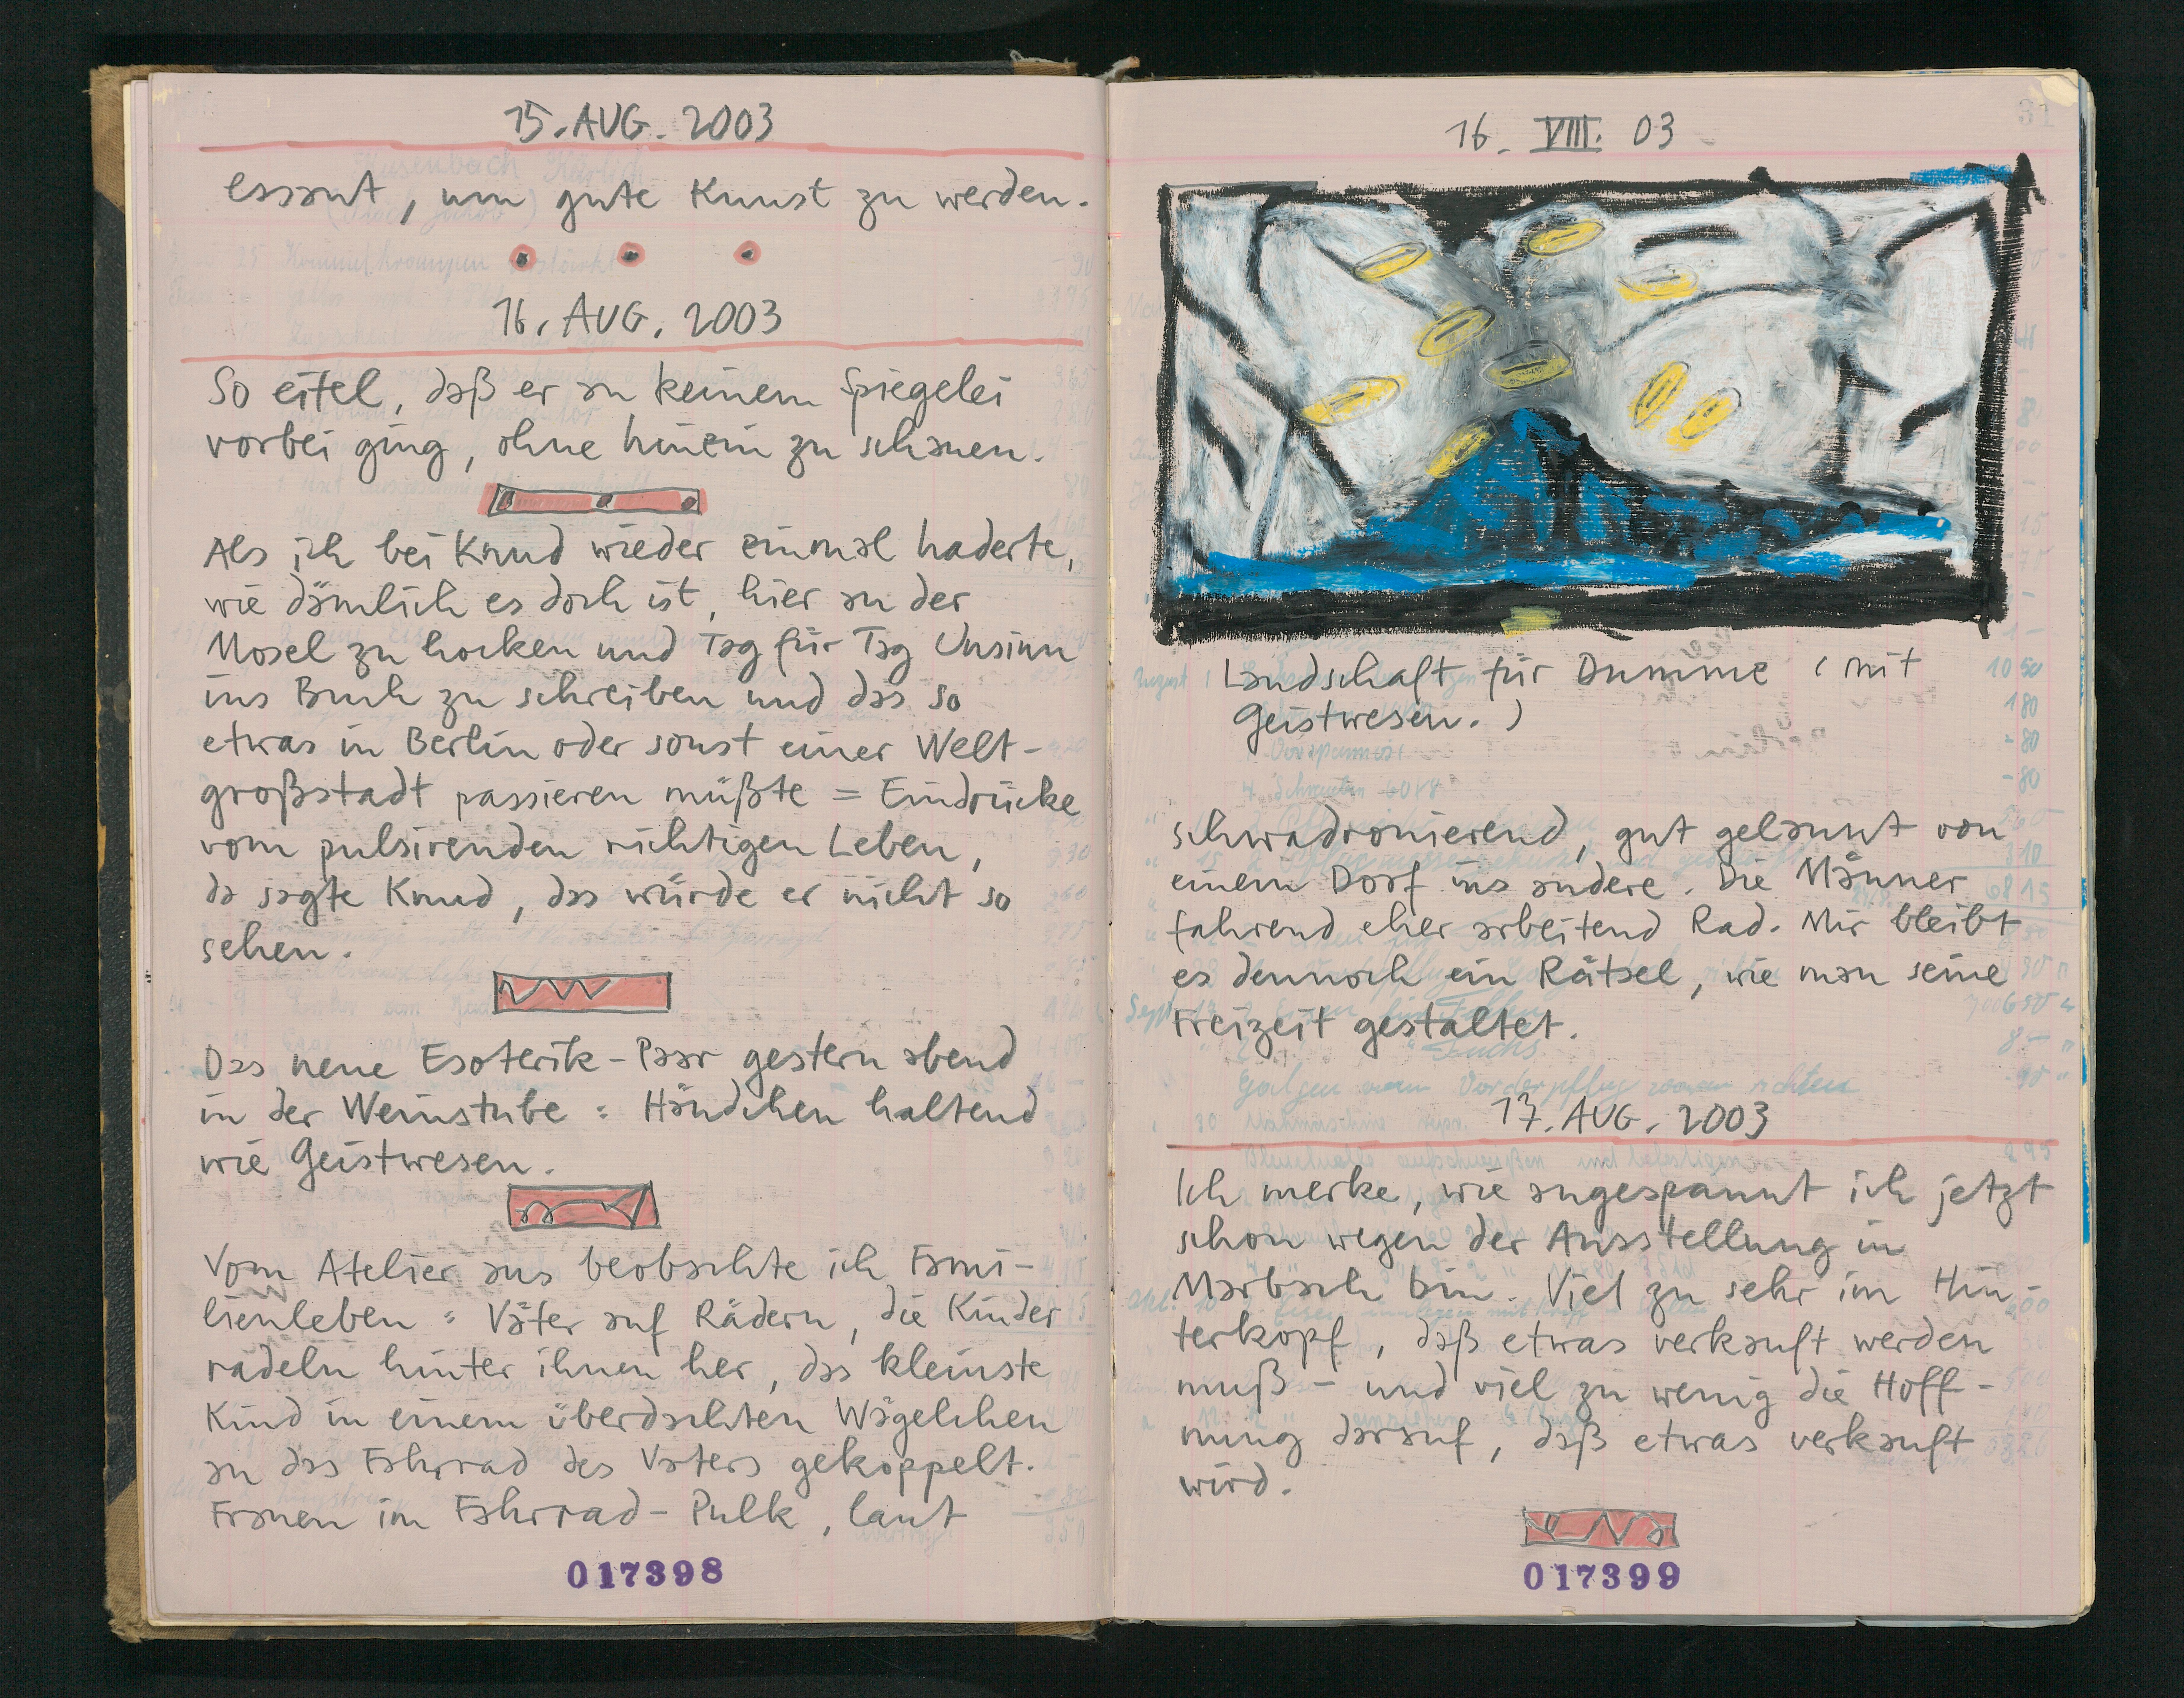 15. AUG. 2003
essant, um gute Kunst zu werden.
16. AUG. 2003
So eitel, daß er an keinem Spiegelei
vorbei ging, ohne hinein zu schauen.
Als ich bei Knud wieder einmal haderte,
wie dämlich es doch ist, hier an der
Mosel zu hocken und Tag für Tag Unsinn
ins Buch zu schreiben und das so
etwas in Berlin oder sonst einer Welt-
großstadt passieren müßte = Eindrücke
vom pulsirenden richtigen Leben,
da sagte Knud, das würde er nicht so
sehen.
Das neue Esoterik-Paar gestern abend
in der Weinstube : Händchen haltend
wie Geistwesen.
Vom Atelier aus beobachte ich Fami-
lienleben : Väter auf Rädern, die Kinder
radeln hinter ihnen her, das kleinste
Kind in einem überdachten Wägelchen
an das Fahrrad des Vaters gekoppelt.
Frauen im Fahrrad-Pulk, laut
017398
31
16. VIII. 03
Landschaft für Dumme (mit
Geistwesen.)
schwadronierend, gut gelaunt von
einem Dorf ins andere. Die Männer
fahrend eher arbeitend Rad. Mir bleibt
es dennoch ein Rätsel, wie man seine
Freizeit gestaltet.
17. AUG. 2003
Ich merke, wie angespannt ich jetzt
schon wegen der Ausstellung in
Marbach bin. Viel zu sehr im Hin-
terkopf, daß etwas verkauft werden
muß - und viel zu wenig die Hoff-
nung darauf, daß etwas verkauft
wird.
017399